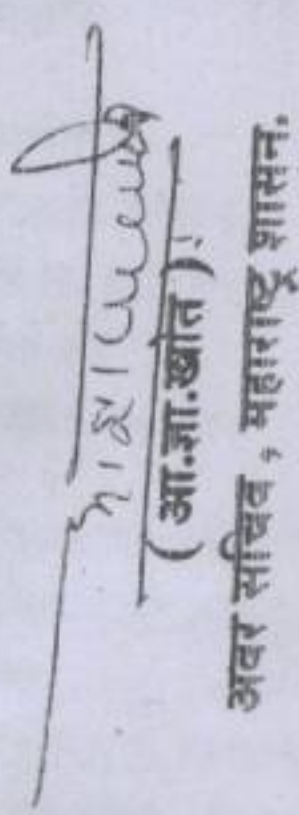 ( आ.ज्ञा.खोत )
अवर सचिव , महाराष्ट्र शासन.